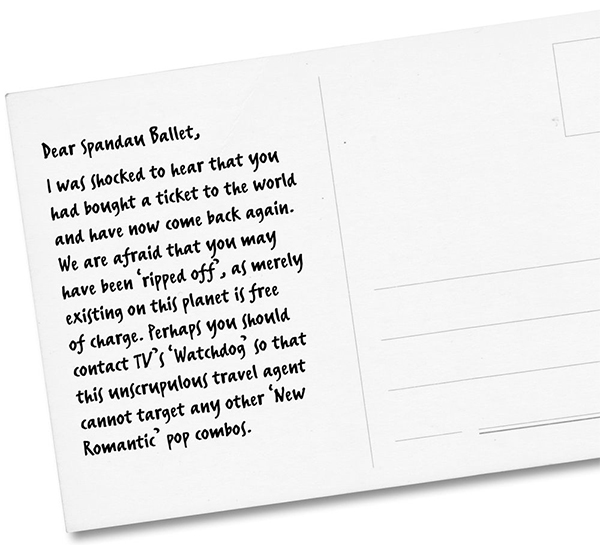 Dear Spandau Ballet,
I was shocked to hear that you
had bought a ticket to the world
and have now come back again.
We are afraid that you may
have been ‘ripped off’, as merely
existing on this planet is free
of charge. Perhaps you should
contact TV’s ‘Watchdog’ so that
this unscrupulous travel agent
cannot target any other ‘New
Romantic’ pop combos.